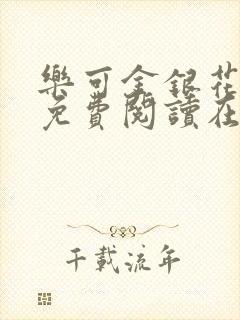 樂可金銀花
免費閱讀在
千載流年